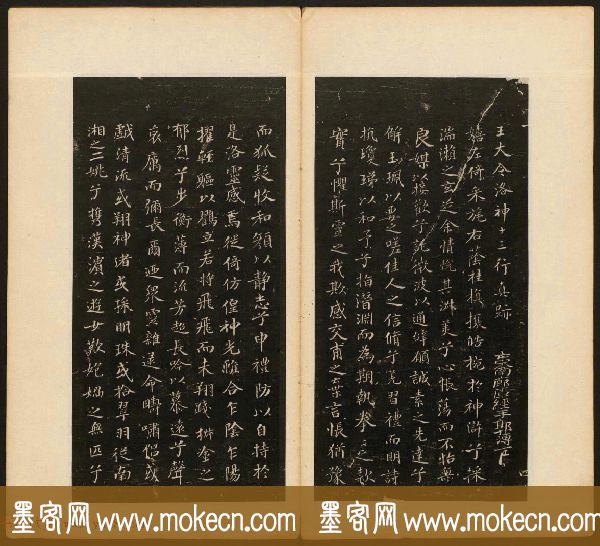 王大令洛神十三行真跡
嬉左倚采旄右蔭桂旗攘皓捥於神滸兮採
湍瀨之玄芝余情悅其淑美兮心振蕩而不怡無
良媒以接歡兮託微波以通辭願誠素之先達兮
解玉珮以要之嗟佳人之信脩兮羌習禮而明詩
抗瓊珶以和予兮指潛淵而為期執拳拳之款
實兮懼斯靈之我欺感交甫之棄言悵猶豫
而狐疑收和顏以靜志兮申禮防以自持於
是洛靈感焉徙倚仿偟神光離合乍陰乍陽
擢輕軀以鶴立若將飛而未翔踐椒塗之
郁烈兮步衡薄而流芳超長吟以慕遠兮聲
哀厲而彌長爾迺眾靈雜遝命疇嘯侶或
戲清流或翔神渚或採明珠或拾翠羽從南
湘之二姚兮攜漢濱之遊女歎妃媧之無匹兮
墨客网 www.mokecn.com 墨客网 www.mokecn.com